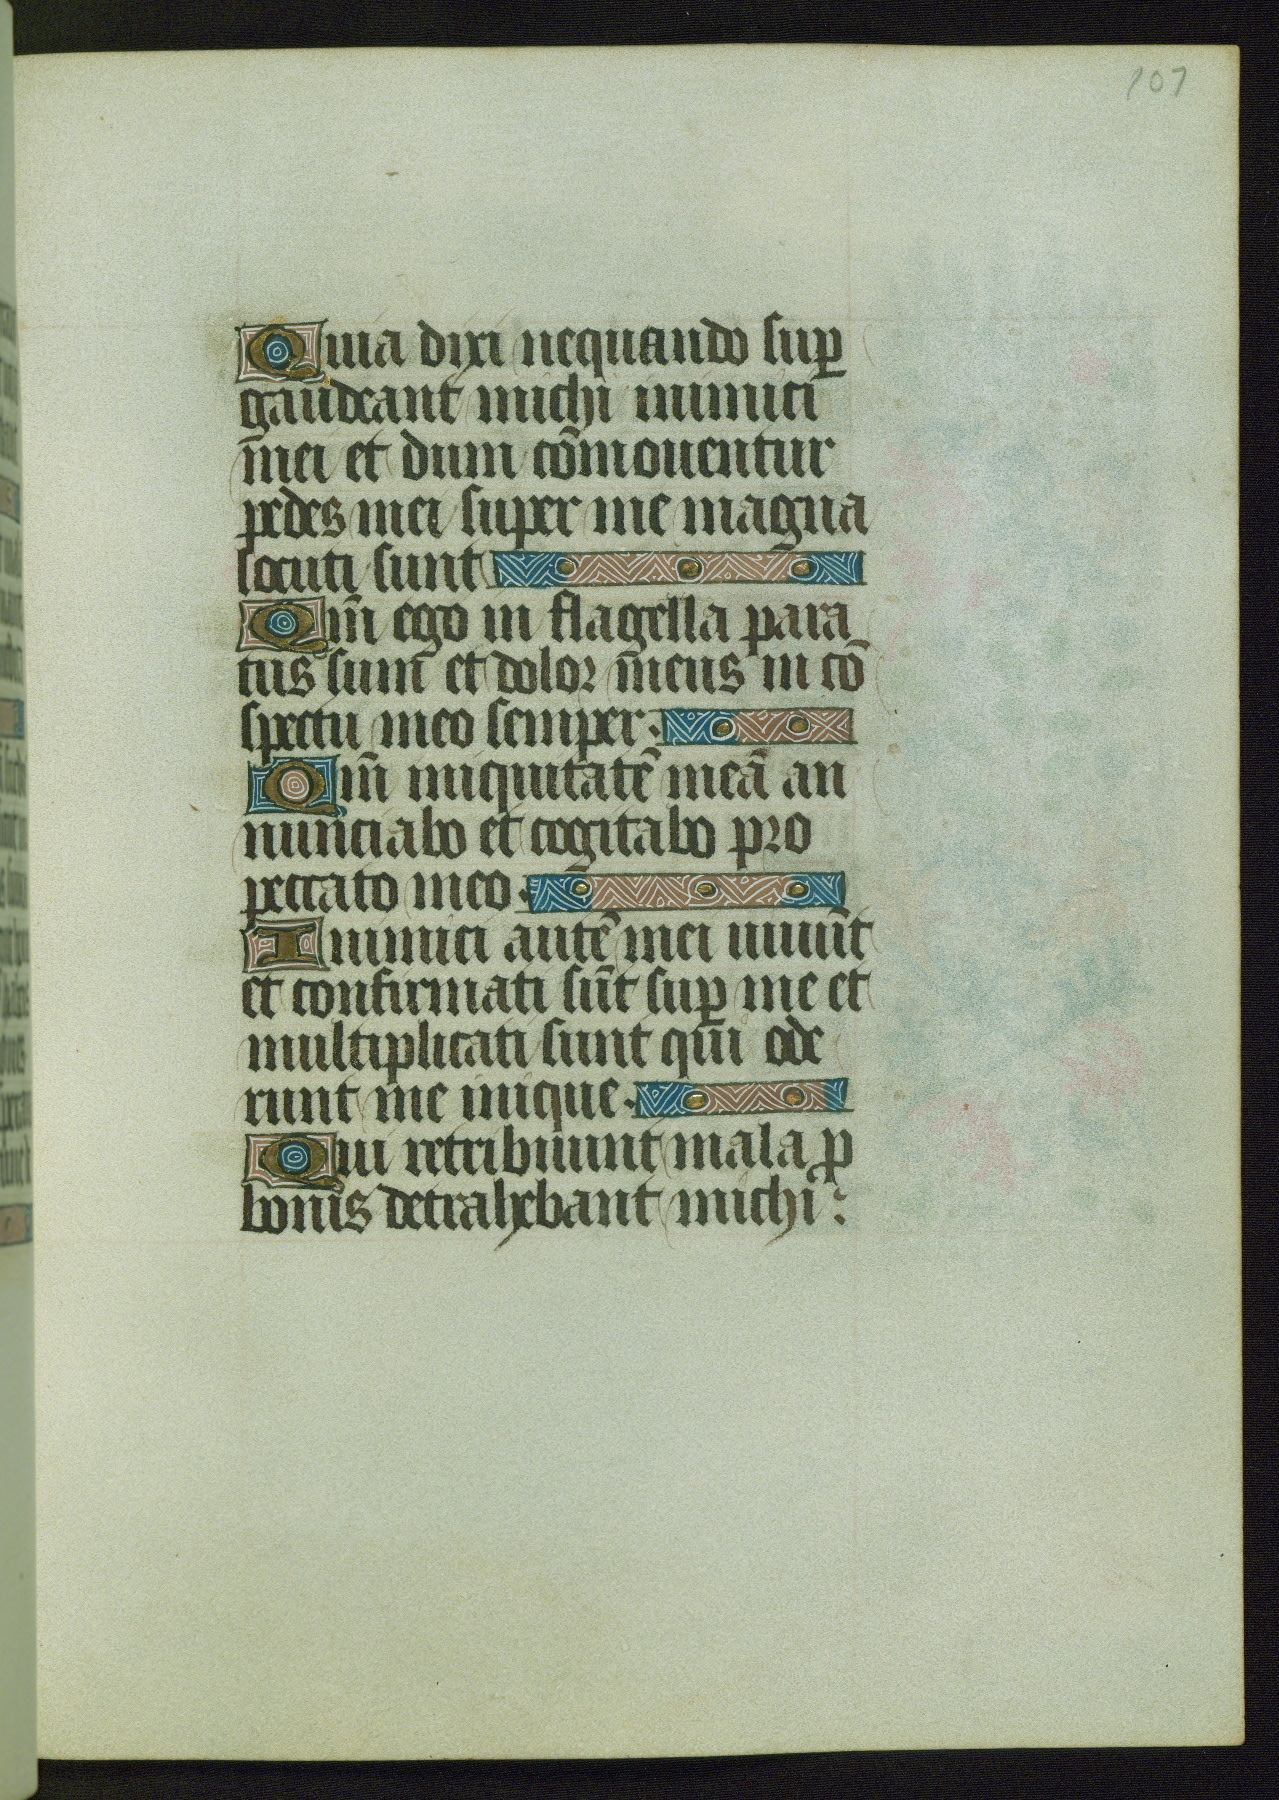 107
Quia dixi nequando sup̱
gaudeant michi inimici
mei et dum cōmouentur
pedes mei super me magna
locuti sunt
Qm̄ ego in flagella para
tus sum et dolor meus in cō
spectu meo semper.
Qm̄ iniquitatē meā an
nunciabo et cogitabo pro
peccato meo.
Inimici autē mei uiuūt
et confirmati sūt sup̱ me et
multiplicati sunt qui ode
runt me inique.
Qui retribuunt mala ꝓ
bonis detrahebant michi: